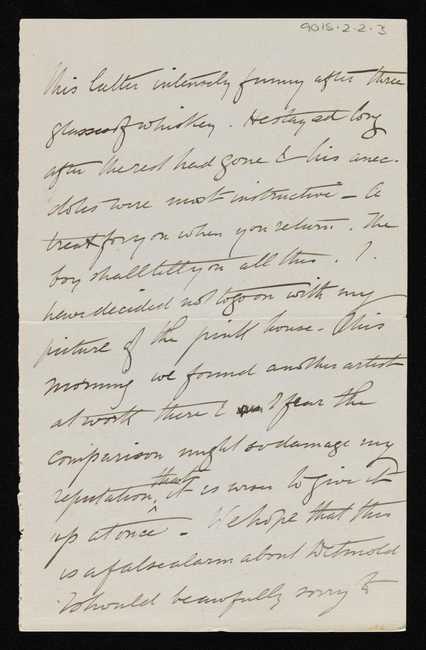 9015-2-2-3
this latter intensely funny after three
glasses of whiskey. He stayed long
after the rest had gone & his anec-
dotes were most instructive - A
treat for you when you return. The
boy shall tell you all this. I.
have decided not to go on with my
picture of the pink house. This
morning we found another artist
at work there & I fear the
comparison might so damage my
reputation, that it is wiser to give it
up at once - We hope that this
is a false alarm about Detmold
I should be awfully sorry to